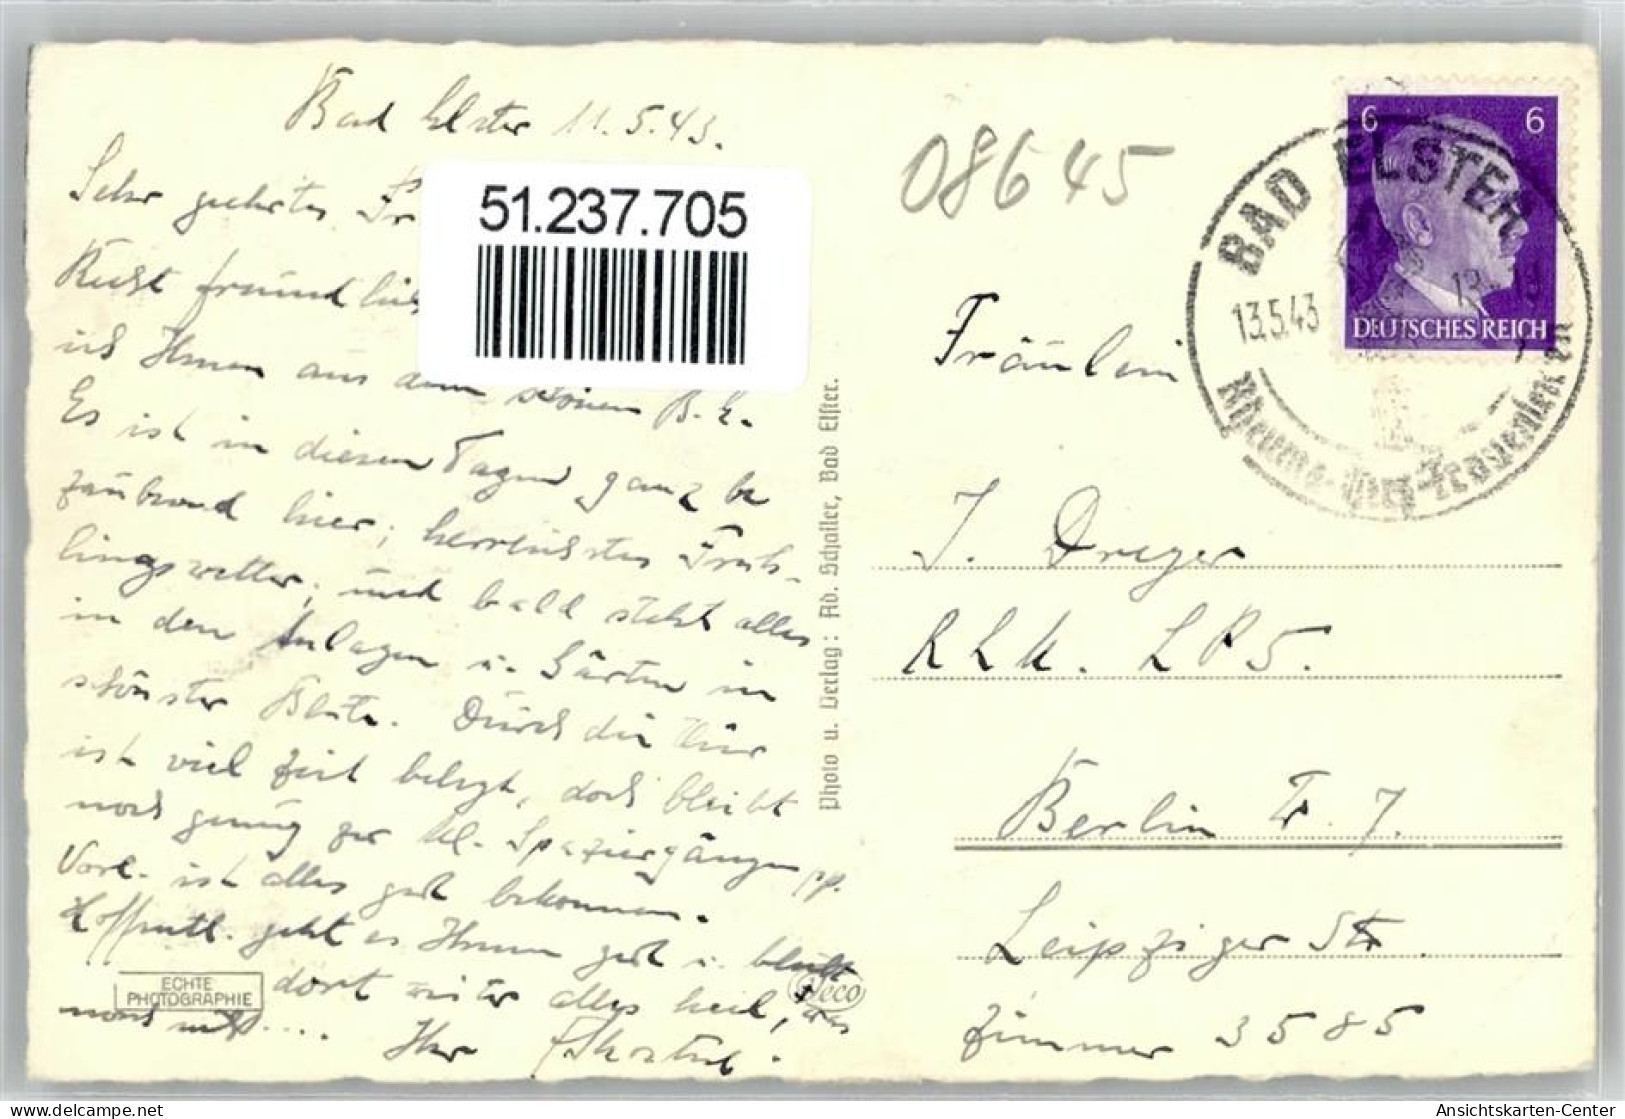 Bad Elster 11.5.43.
Sehr geehrtes Fr
Recht freundlich
ich Ihnen aus dem schönen B. E.
Es ist in diesen Tagen ganz be
zaubernd hier; herrlichstes Früh-
lingswetter, und bald steht alles
in den Anlagen u. Gärten in
schönster Blüte. Durch die Kur
ist viel Zeit belegt, doch bleibt
noch genug zu kl. Spaziergängen pp.
Vorl. ist alles gut bekommen.
Hoffentl. geht es Ihnen gut u. bleibt
dort weiter alles heil, was
noch
Ihr
ECHTE
PHOTOGRAPHIE
51.237.705
Photo u. Verlag: Ad. Schailer, Bad Elster.
08645
6 6
DEUTSCHES REICH
BAD ELSTER
13.5.43
Rheuma-Herz-Frauenleiden
Fräulein
J. Dreyer
RLM. LP5.
Berlin W. 7.
Leipziger Str
Zimmer 3585
Ansichtskarten-Center
www.delcampe.net